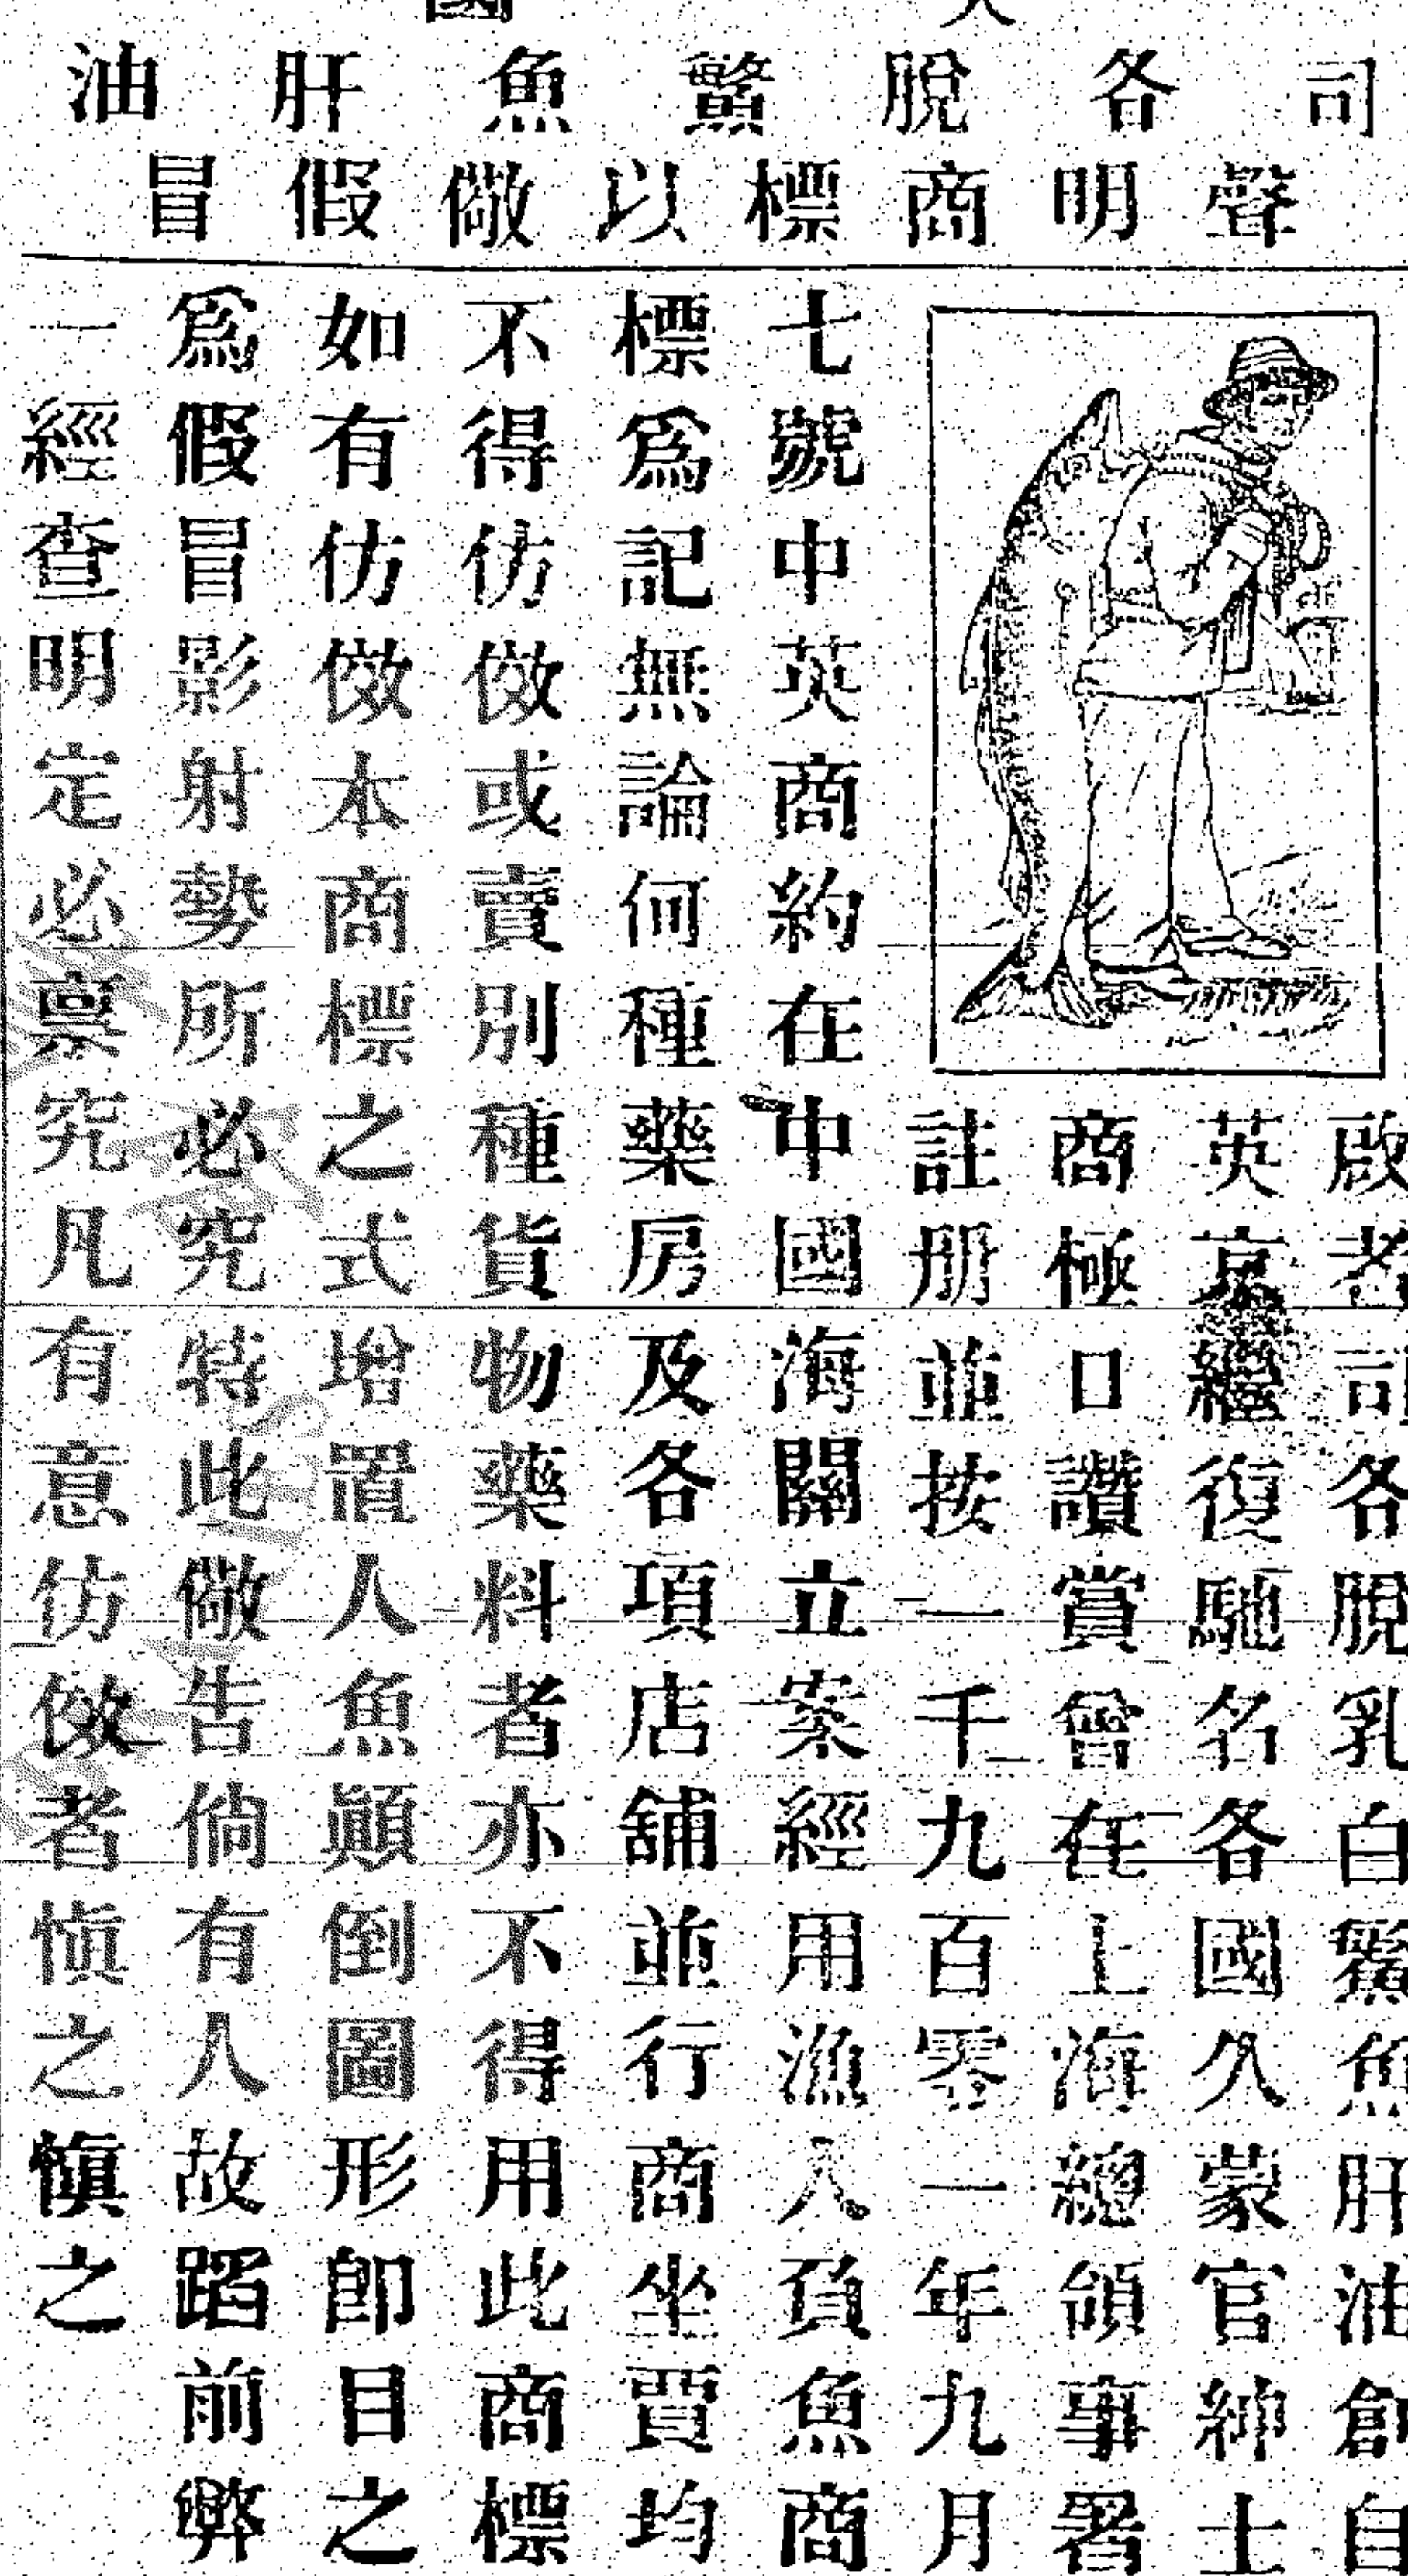 司各脫鰵魚肝油
聲明商標以儆假冒
啟者司各脫乳白鰵魚肝油創自
英京繼復馳名各國久蒙官紳士
商極口讚賞曾在上海總領事署
註册並按一千九百零一年九月
七號中英商約在中國海關立案經用漁人負魚商
標爲記無論何種藥房及各項店舖並行商坐賈均
不得仿傚或賣別種貨物藥料者亦不得用此商標
如有仿傚本商標之式增置人魚顚倒圖形卽目之
爲假冒影射勢所必究特此儆告倘有人故蹈前弊
一經查明定必禀究凡有意仿傚者愼之愼之